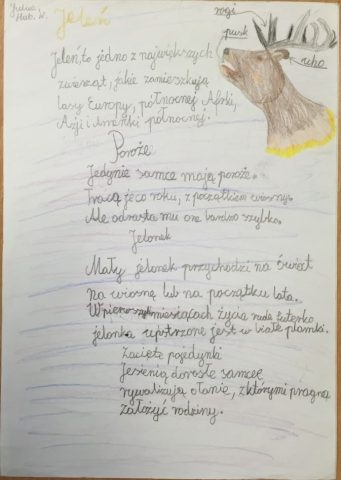 Julia,
Hab. W.
Jeleń
rogi
pysk
ucho
Jeleń, to jedno z największych
zwierząt, jakie zamieszkują
lasy Europy, północnej Afryki,
Azji i Ameryki północnej.
Poroże
Jedynie samce mają poroże.
Tracą je co roku, z początkiem wiosny.
Ale odrasta mu one bardzo szybko.
Jelonek
Mały jelonek przychodzi na świat
na wiosnę lub na początku lata.
W pierwszych miesiącach życia rude futerko
jelonka upstrzone jest w białe plamki.
Zacięte pojedynki
Jesienią, dorosłe samce
rywalizują o łanie, z którymi pragną
założyć rodziny.